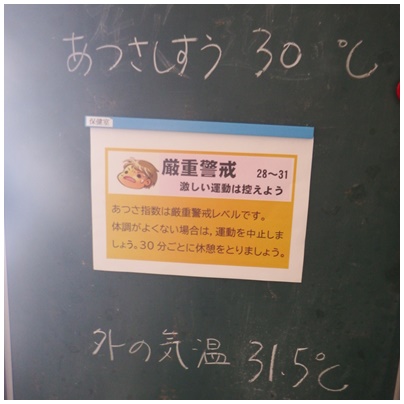 あつさしすう 30℃
保健室
厳重警戒 28～31
激しい運動は控えよう
あつさ指数は厳重警戒レベルです。
体調がよくない場合は、運動を中止しま
しょう。30分ごとに休憩をとりましょう。
外の気温 31.5℃